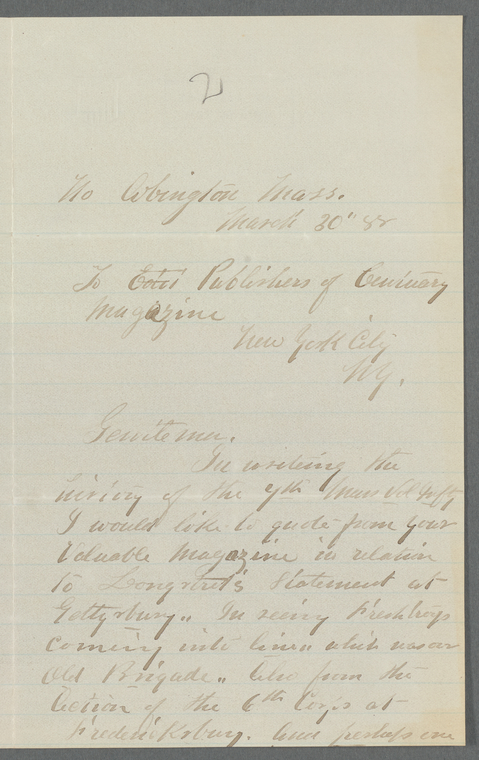 2
No Abington Mass.
March 30" 88
To Edts Publishers of Century
Magazine
New York City
NY.
Gentlemen.
In writing the
history of the 7th Mass Vol Infty
I would like to quote from your
Valuable Magazine in relation
to Longstreet's Statement at
Gettysburg " In seeing Fresh troops
coming into line " which was our
Old Brigade " Also from the
Action of the 6th Corps at
Fredericksburg. And perhaps one